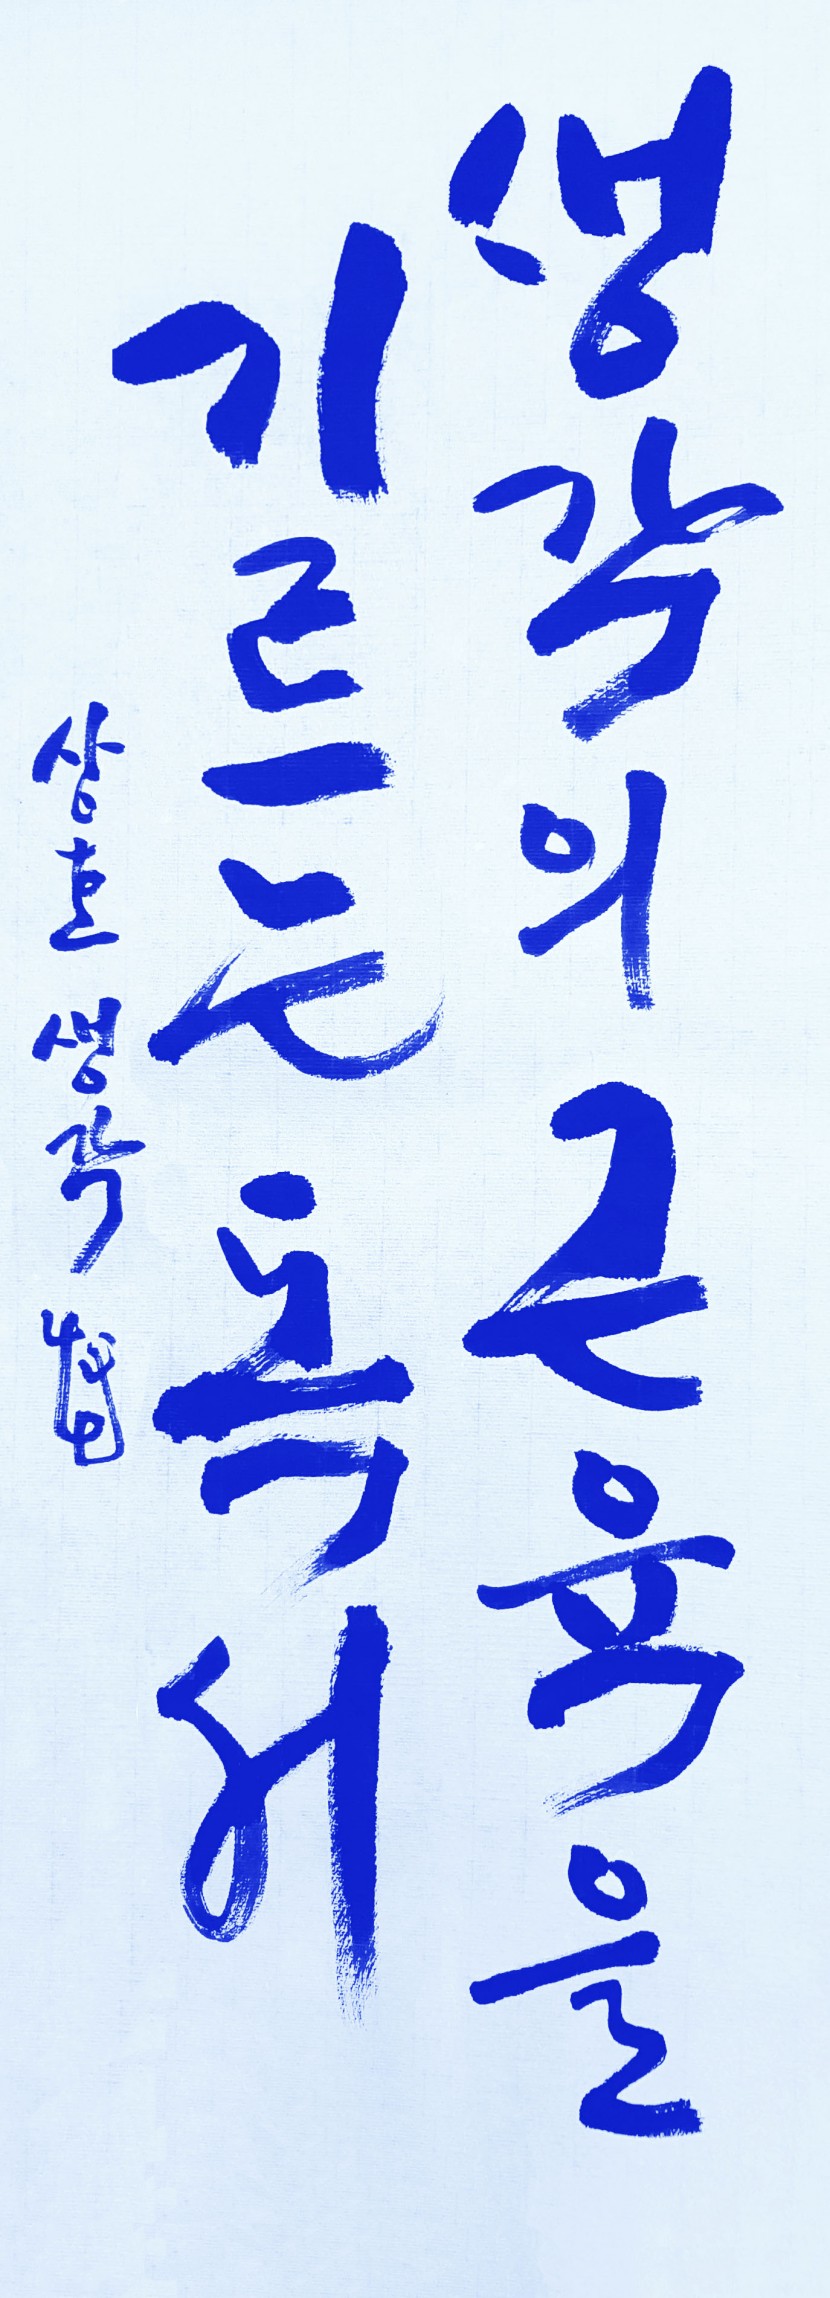 생각의 근육을
기르는 독서
상호 생각